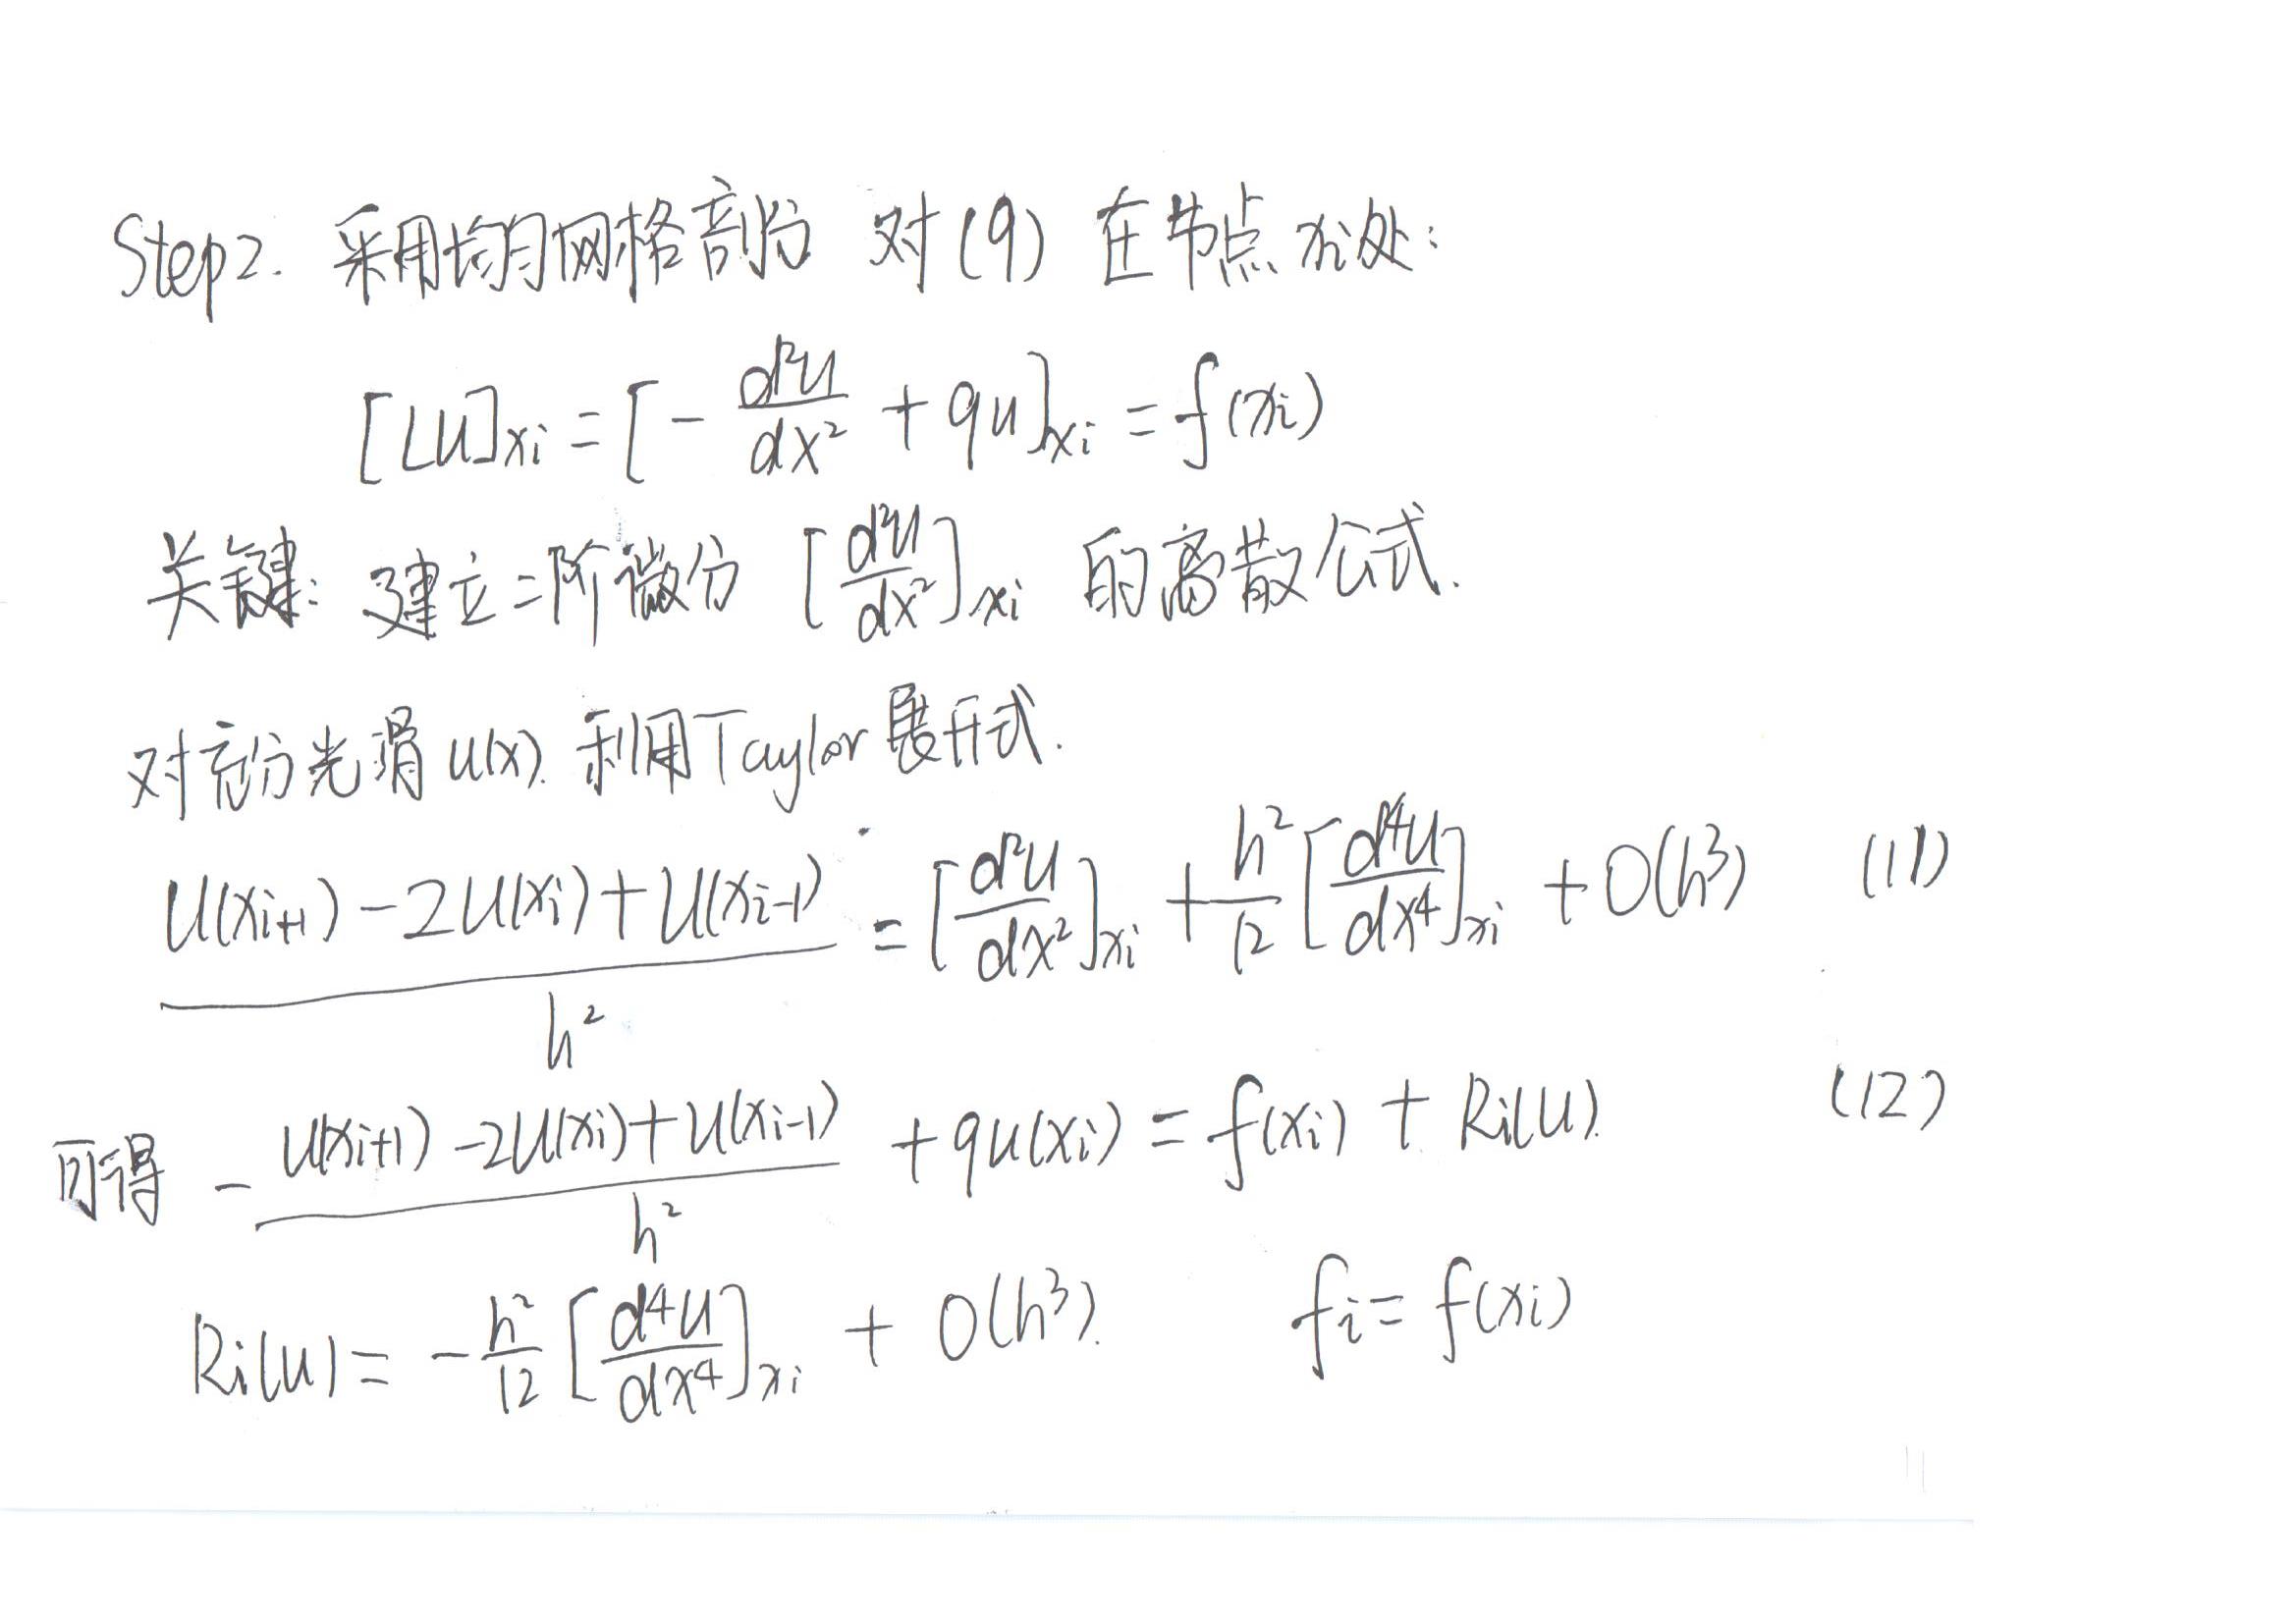 Step2. 采用均匀网格剖分 对(9) 在节点 xi处:
[Lu]xi = [- d²u/dx² + qu]xi = f(xi)
关键: 建立二阶微分 [d²u/dx²]xi 的离散公式.
对充分光滑u(x). 利用Taylor展开式.
(u(xi+1) - 2u(xi) + u(xi-1))/h² = [d²u/dx²]xi + h²/12 [d⁴u/dx⁴]xi + O(h³) (11)
可得 - (u(xi+1) - 2u(xi) + u(xi-1))/h² + qu(xi) = f(xi) + Ri(u). (12)
Ri(u) = - h²/12 [d⁴u/dx⁴]xi + O(h³). fi = f(xi)